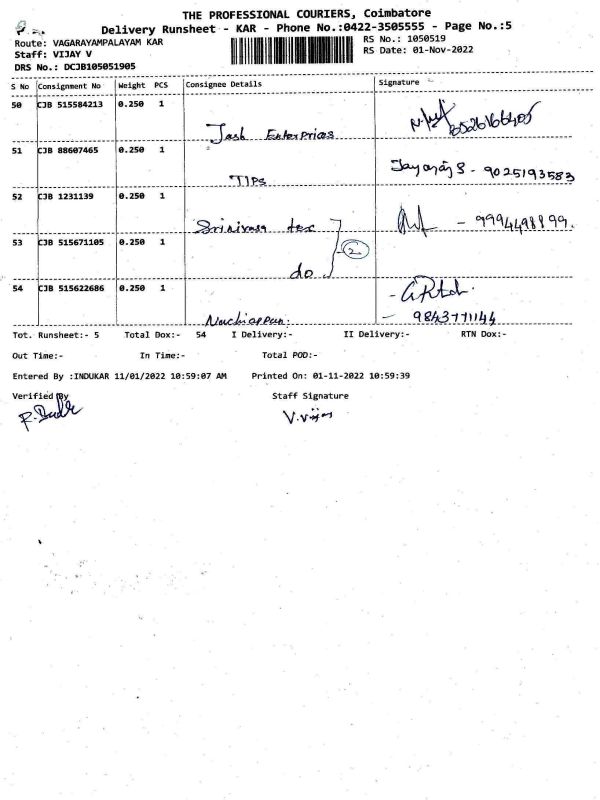 THE PROFESSIONAL COURIERS, Coimbatore
Delivery Runsheet - KAR - Phone No.:0422-3505555 - Page No.:5
Route: VAGARAYAMPALAYAM KAR
RS No.: 1050519
Staff: VIJAY V
RS Date: 01-Nov-2022
DRS No.: DCJB105051905
S No Consignment No Weight PCS Consignee Details Signature
50 CJB 515584213 0.250 1
Jash Enterprises
51 CJB 88607465 0.250 1
Jayaraj S - 9025193583
TIPS
52 CJB 1231139 0.250 1
Srinivasa tex - 9994498899.
53 CJB 515671105 0.250 1
2
do
54 CJB 515622686 0.250 1
Nachiappan. - 9843771144
Tot. Runsheet:- 5 Total Dox:- 54 I Delivery:- II Delivery:- RTN Dox:-
Out Time:- In Time:- Total POD:-
Entered By :INDUKAR 11/01/2022 10:59:07 AM Printed On: 01-11-2022 10:59:39
Verified By Staff Signature
V.Vijay